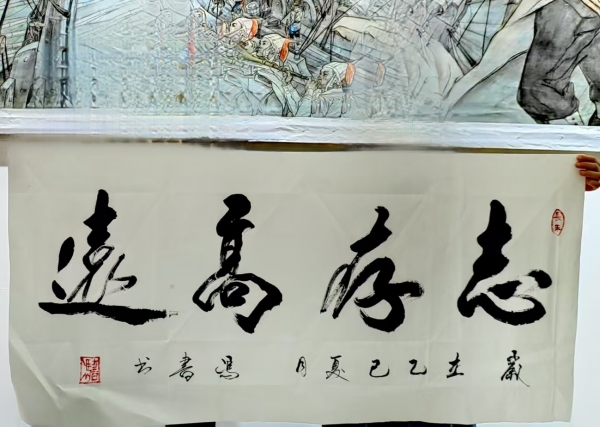 志存高遠
歲在乙巳夏月 馮書書